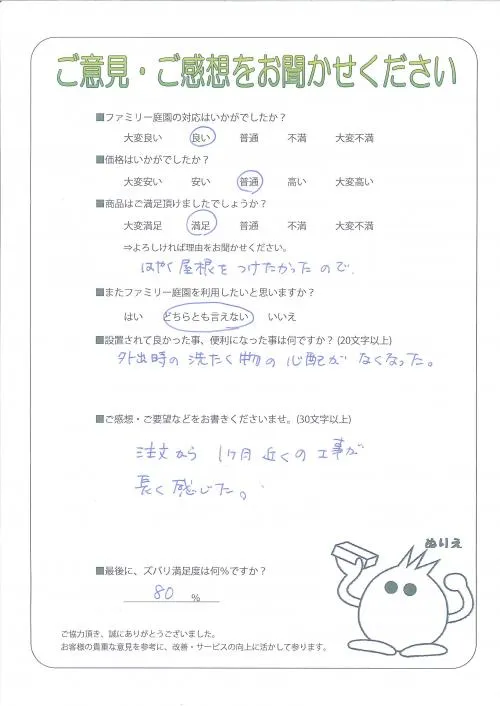 ご意見・ご感想をお聞かせください
■ファミリー庭園の対応はいかがでしたか?
大変良い 良い 普通 不満 大変不満
■価格はいかがでしたか?
大変安い 安い 普通 高い 大変高い
■商品はご満足頂けましたでしょうか?
大変満足 満足 普通 不満 大変不満
⇒よろしければ理由をお聞かせください。
はやく屋根をつけたかったので、
■またファミリー庭園を利用したいと思いますか?
はい どちらとも言えない いいえ
■設置されて良かった事、便利になった事は何ですか? (20文字以上)
外出時の洗たく物の心配がなくなった。
■ご感想・ご要望などをお書きくださいませ。(30文字以上)
注文から 1ヶ月近くの工事が
長く感じた。
ぬりえ
■最後に、ズバリ満足度は何%ですか?
80 %
ご協力頂き、誠にありがとうございました。
お客様の貴重な意見を参考に、改善・サービスの向上に活かして参ります。